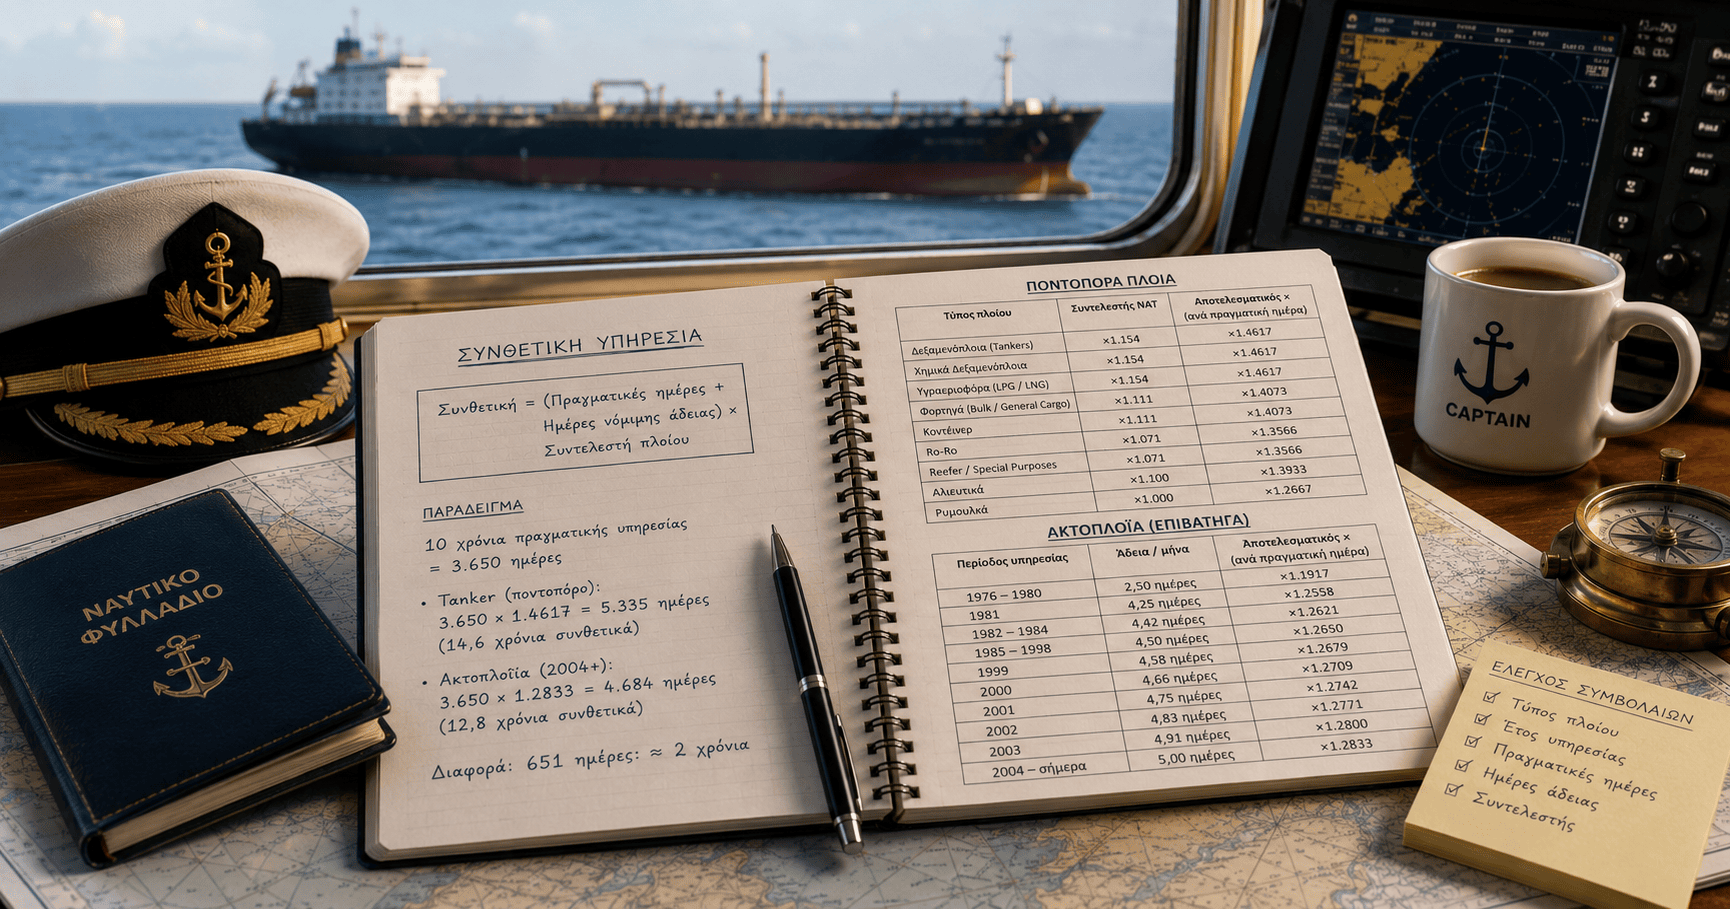 ΣΥΝΘΕΤΙΚΗ ΥΠΗΡΕΣΙΑ
Συνθετική = (Πραγματικές ημέρες +
Ημέρες νόμιμης άδειας) ×
Συντελεστή πλοίου
ΠΑΡΑΔΕΙΓΜΑ
10 χρόνια πραγματικής υπηρεσίας
= 3.650 ημέρες
• Tanker (ποντοπόρο):
3.650 × 1.4617 = 5.335 ημέρες
(14,6 χρόνια συνθετικά)
• Ακτοπλοΐα (2004+):
3.650 × 1.2833 = 4.684 ημέρες
(12,8 χρόνια συνθετικά)
Διαφορά: 651 ημέρες: ≈ 2 χρόνια
ΠΟΝΤΟΠΟΡΑ ΠΛΟΙΑ
Τύπος πλοίου Συντελεστής ΝΑΤ Αποτελεσματικός × (ανά πραγματική ημέρα)
Δεξαμενόπλοια (Tankers) ×1.154 ×1.4617
Χημικά Δεξαμενόπλοια ×1.154 ×1.4617
Υγραεριοφόρα (LPG / LNG) ×1.154 ×1.4617
Φορτηγά (Bulk / General Cargo) ×1.111 ×1.4073
Κοντέινερ ×1.111 ×1.4073
Ro-Ro ×1.071 ×1.3566
Reefer / Special Purposes ×1.071 ×1.3566
Αλιευτικά ×1.100 ×1.3933
Ρυμουλκά ×1.000 ×1.2667
ΑΚΤΟΠΛΟΪΑ (ΕΠΙΒΑΤΗΓΑ)
Περίοδος υπηρεσίας Άδεια / μήνα Αποτελεσματικός × (ανά πραγματική ημέρα)
1976 – 1980 2,50 ημέρες ×1.1917
1981 4,25 ημέρες ×1.2558
1982 – 1984 4,42 ημέρες ×1.2621
1985 – 1998 4,50 ημέρες ×1.2650
1999 4,58 ημέρες ×1.2679
2000 4,66 ημέρες ×1.2709
2001 4,75 ημέρες ×1.2742
2002 4,83 ημέρες ×1.2771
2003 4,91 ημέρες ×1.2800
2004 – σήμερα 5,00 ημέρες ×1.2833
ΝΑΥΤΙΚΟ
ΦΥΛΛΑΔΙΟ
CAPTAIN
ΕΛΕΓΧΟΣ ΣΥΜΒΟΛΑΙΩΝ
☑ Τύπος πλοίου
☑ Έτος υπηρεσίας
☑ Πραγματικές ημέρες
☑ Ημέρες άδειας
☑ Συντελεστής